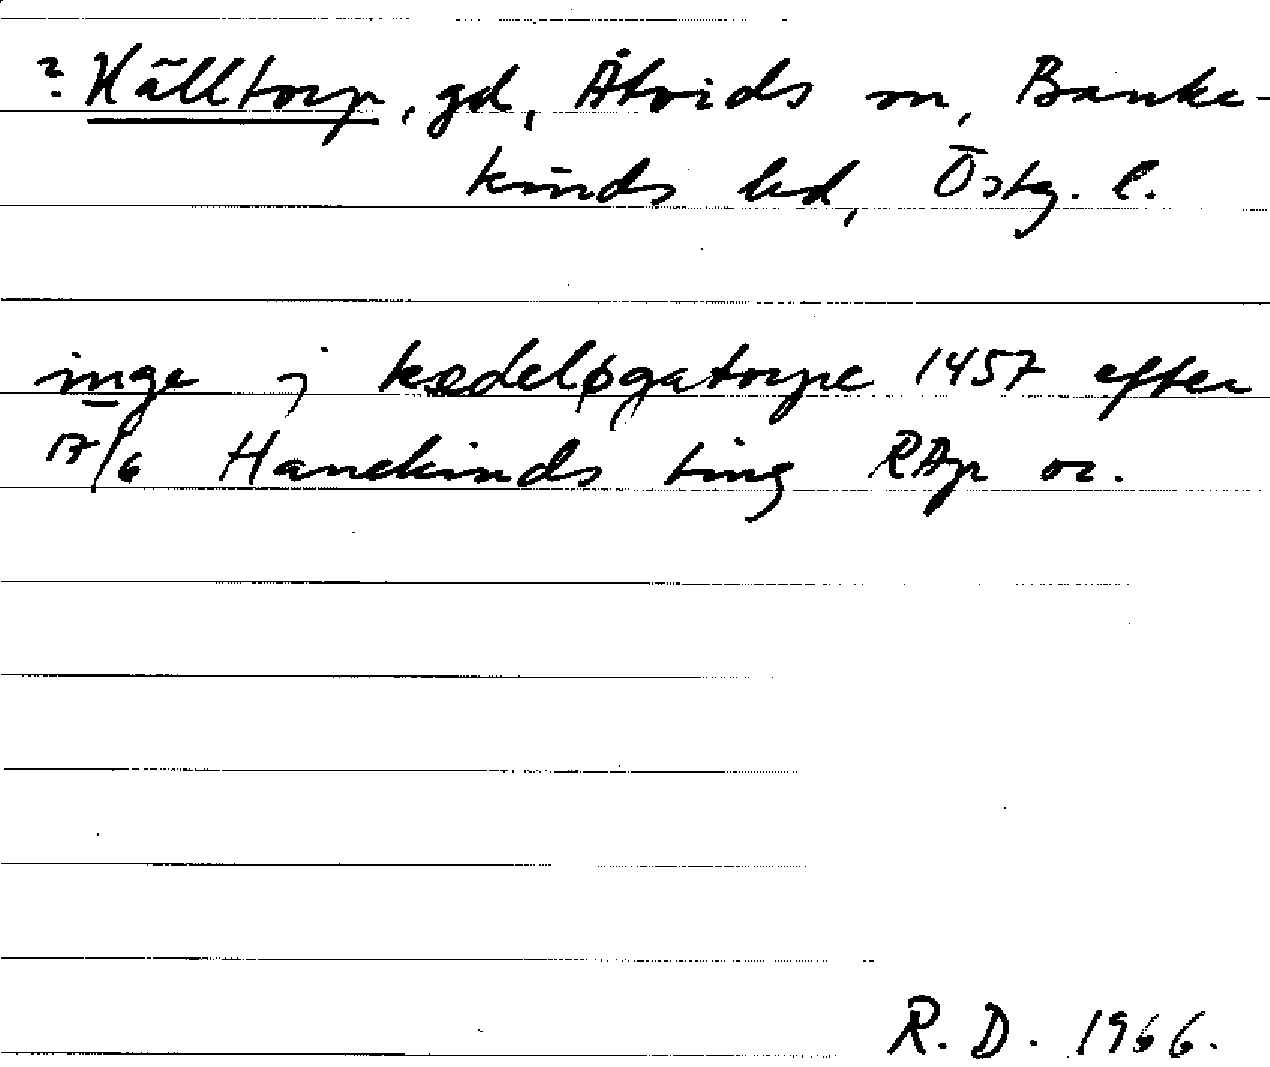 ? Källtorp, gd, Åtvids sn, Banke-
kinds hd, Östg. l.
inge j kædeløgatorpe 1457 efter
17/6 Hanekinds ting RAp or.
R. D. 1966.